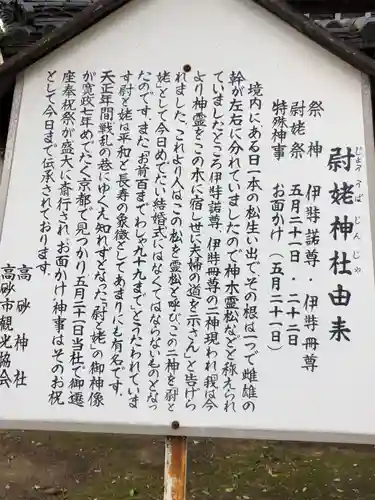 尉姥神社由来
じょうとうばじんじゃ
祭神 伊弉諾尊・伊弉冊尊
尉姥祭 五月二十一日・二十二日
特殊神事 お面かけ(五月二十一日)
境内にある日一本の松生い出で、その根は一つで雌雄の
幹が左右に分れていましたので神木霊松などと称えられ
ていましたところ伊弉諾尊、伊弉冊尊の二神現われ「我は今
より神霊をこの木に宿し世に夫婦の道を示さん」と告げら
れました。これより人はこの松を霊松と呼び、この二神を「尉と
姥」として今日めでたい結婚式にはなくてはならないものとなっ
たのです。また「お前百までわしゃ九十九まで」とうたわれていま
す尉と姥は平和と長寿の象徴としてあまりにも有名です。
天正年間戦乱の巷にゆくえ知れずとなった「尉と姥」の御神像
が寛政七年めでたく京都で見つかり五月二十一日当社で御遷
座奉祝祭が盛大に斎行され「お面かけ」神事はそのお祝
として今日まで伝承されております。
高砂神社
高砂市観光協会